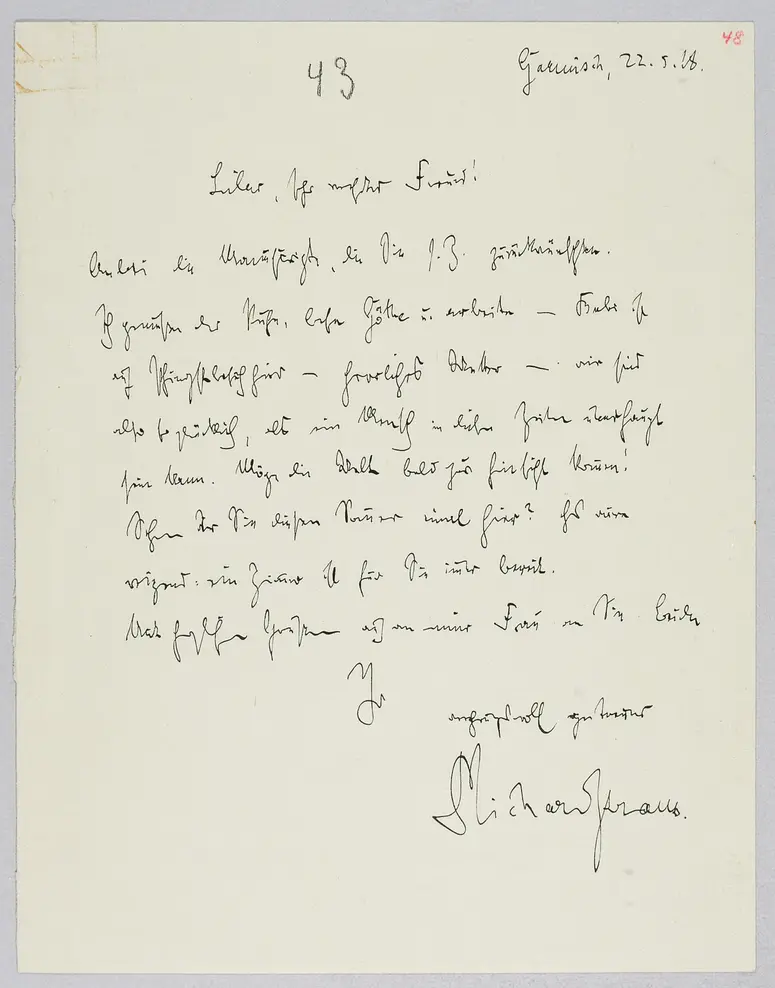 48
43
Garmisch, 22.5.18.
Lieber, sehr verehrter Freund!
Anbei die Manuskripte, die Sie s. Z. zurückwünschten.
Ich geniesse der Ruhe, lese Göthe u. arbeite — Bubi ist
auf Pfingstbesuch hier — herrliches Wetter — wir sind
also so glücklich, als ein Mensch in diesen Zeiten überhaupt
sein kann. Möge die Welt bald zur Einsicht kommen!
Sehen wir Sie diesen Sommer einmal hier? Es wäre
reizend: ein Zimmer ist für Sie immer bereit.
Mit herzlichen Grüssen auch von meiner Frau an Sie Beide
Ihr
verehrungsvoll getreuer
Richard Strauss.